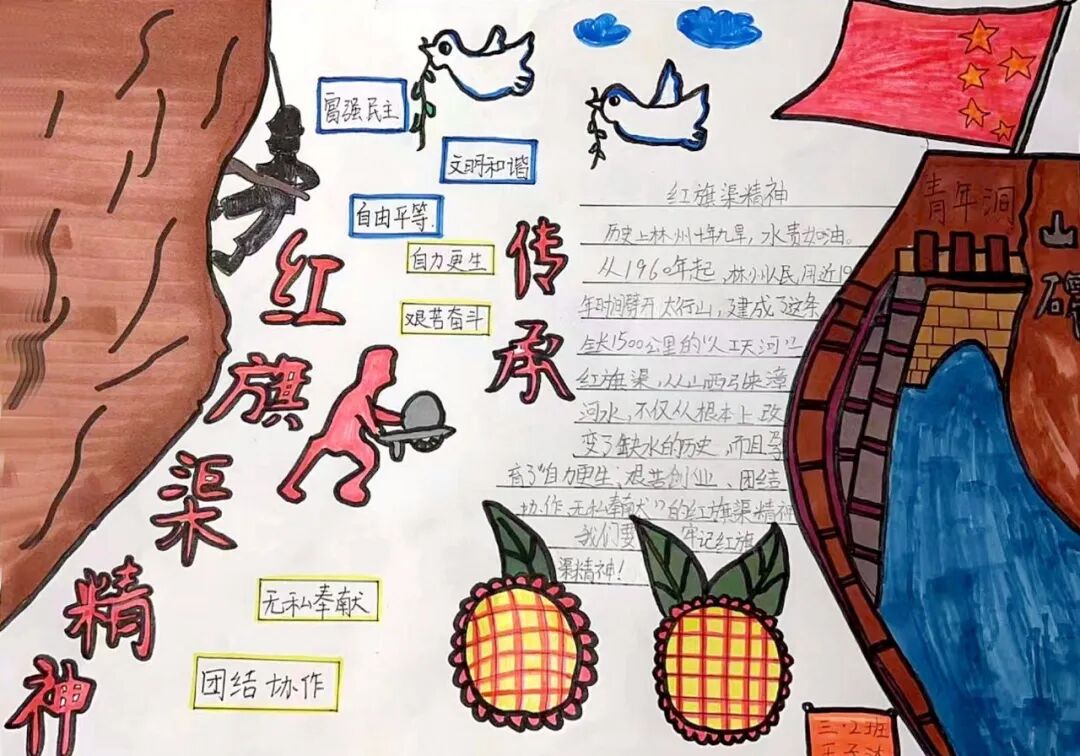 传承
红旗渠精神
富强民主
文明和谐
自由平等.
自力更生
艰苦奋斗
无私奉献
团结协作
红旗渠精神
历史上林州十年九旱，水贵如油。
从1960年起，林州人民用近1
年时间劈开太行山，建成了这条
全长1500公里的“人工天河”—
红旗渠，从山西引来漳
河水，不仅从根本上改
变了缺水的历史，而且孕
育了“自力更生、艰苦创业、团结
协作、无私奉献”的红旗渠精神
我们要 牢记红旗
渠精神！
青年洞
山碑
三·2班